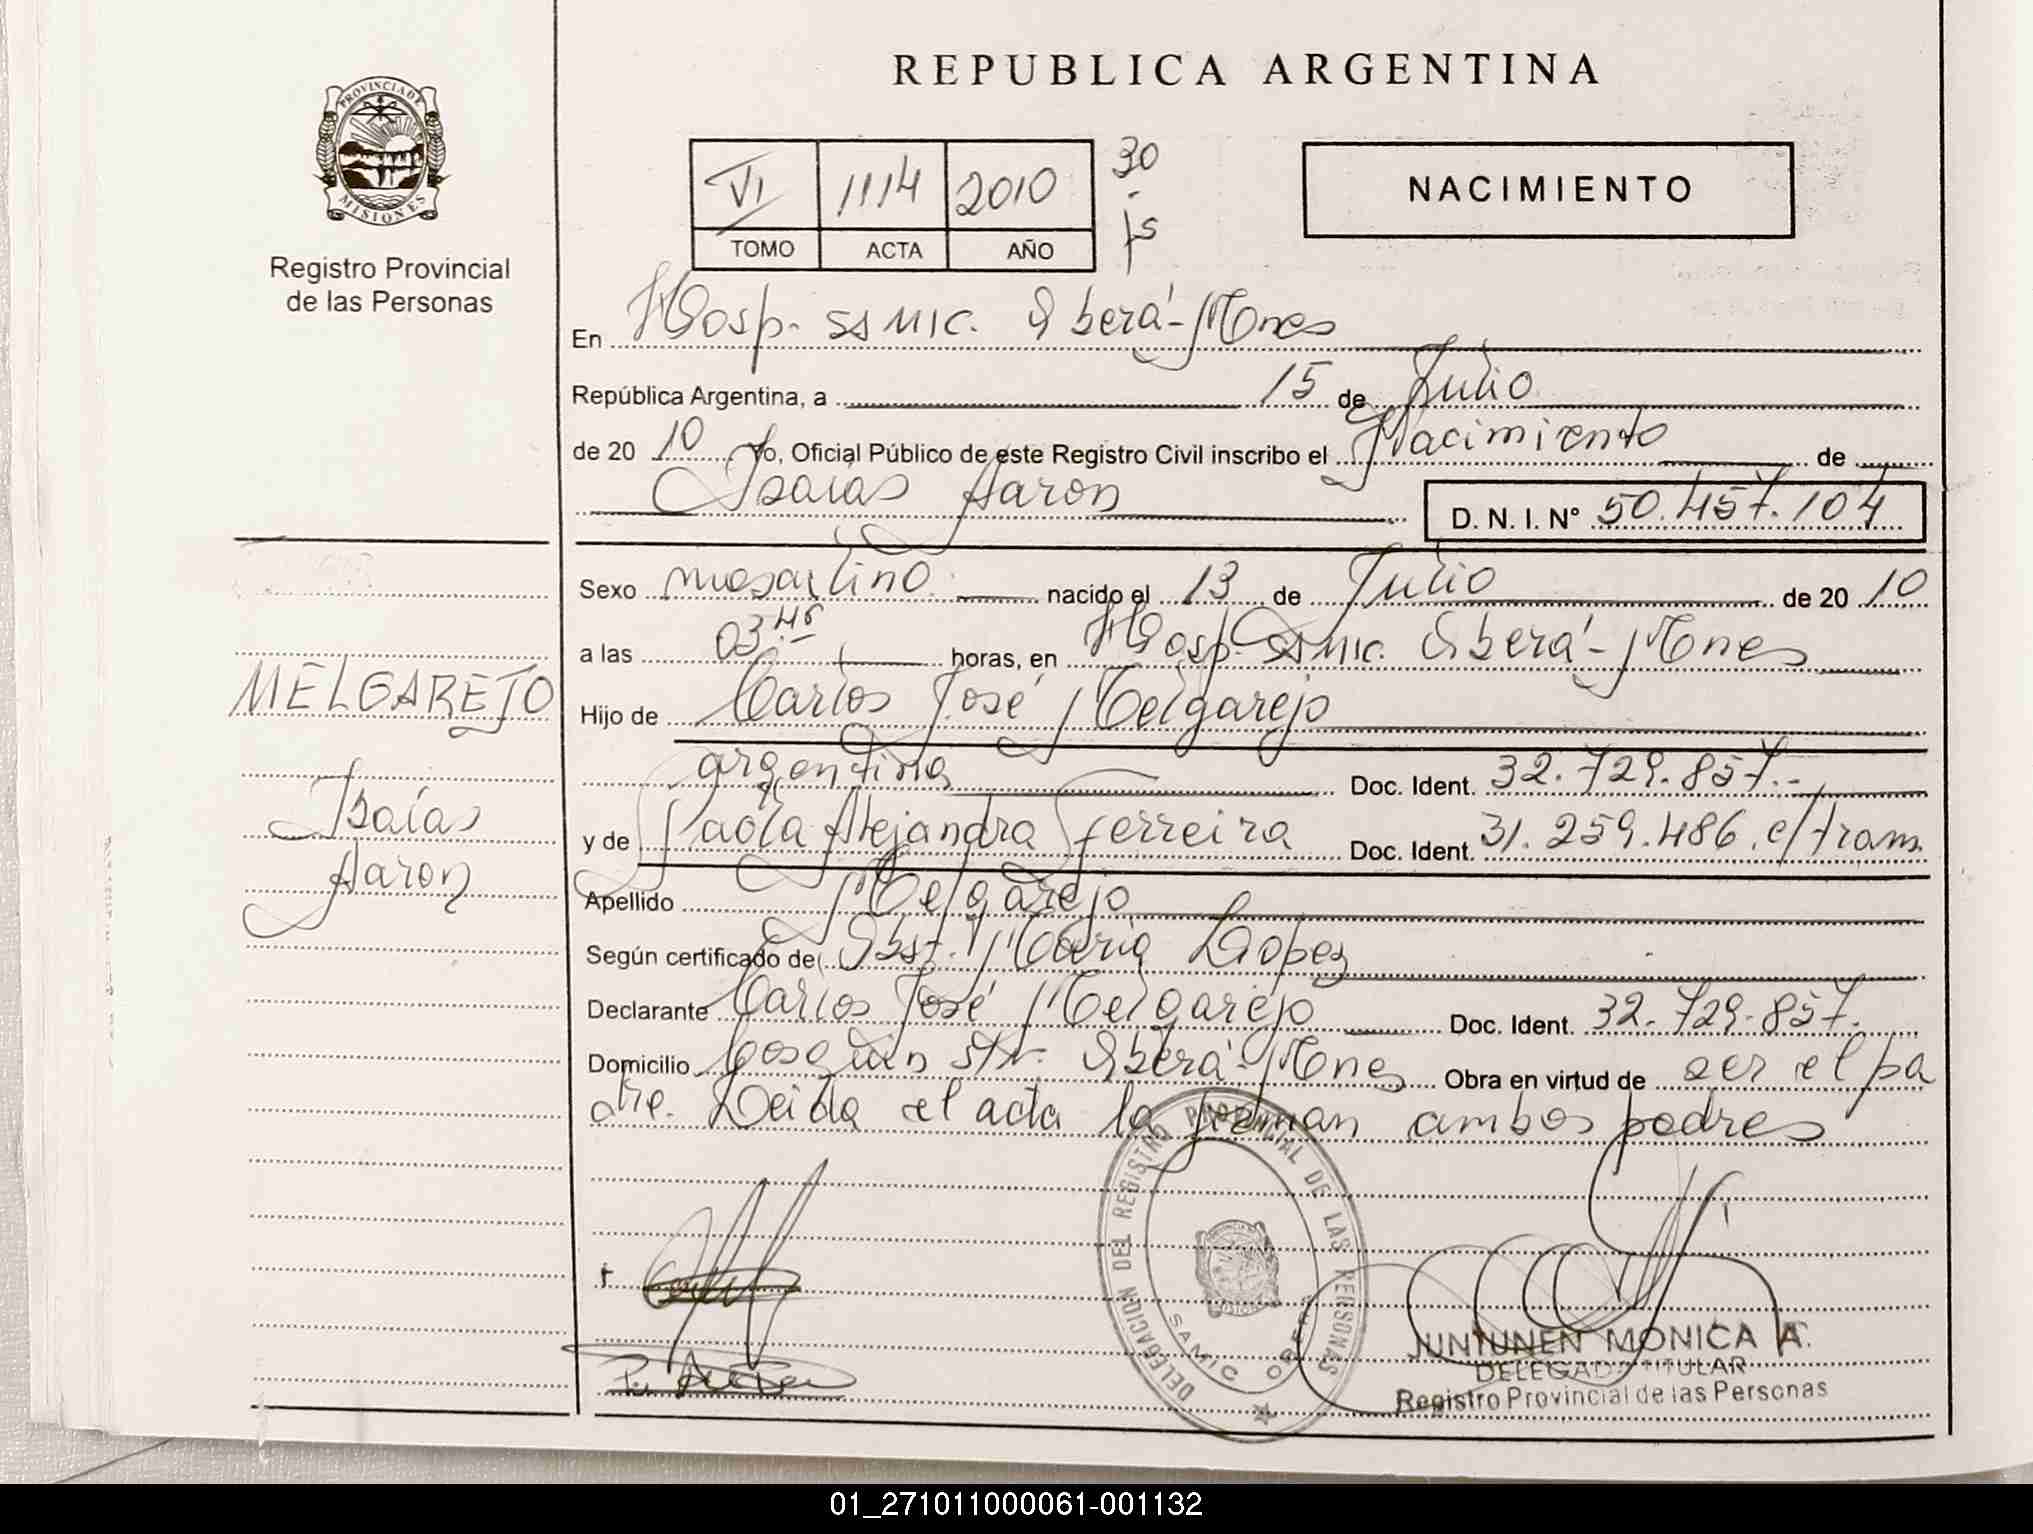 REPUBLICA ARGENTINA
PROVINCIA DE
MISIONES
Registro Provincial
de las Personas
VI 1114 2010
TOMO ACTA AÑO
30
NACIMIENTO
En Hosp. SAMIC. Oberá-Mnes
República Argentina, a 15 de Julio
de 20 10 Yo, Oficial Público de este Registro Civil inscribo el Nacimiento de
Isaías Aaron D. N. I. N° 50.457.104
Sexo masculino. nacido el 13 de Julio de 20 10
a las 03 45 horas, en Hosp SAMIC. Oberá-Mnes
Hijo de Carlos José Melgarejo
argentina Doc. Ident. 32.729.857.-
y de Paola Alejandra Ferreira Doc. Ident. 31.259.486.c/tram.
Apellido Melgarejo
Según certificado de Obst. María López
Declarante Carlos José Melgarejo Doc. Ident. 32.729.857.
Domicilio Cosquin s/n. Oberá-Mnes Obra en virtud de ser el pa
dre. Leida el acta la firman ambos padres
MELGAREJO
Isaías
Aaron
DELEGACION DEL REGISTRO PROVINCIAL DE LAS PERSONAS
SAMIC OBERA
JUNTUNEN MONICA A.
DELEGADA TITULAR
Registro Provincial de las Personas
01_271011000061-001132